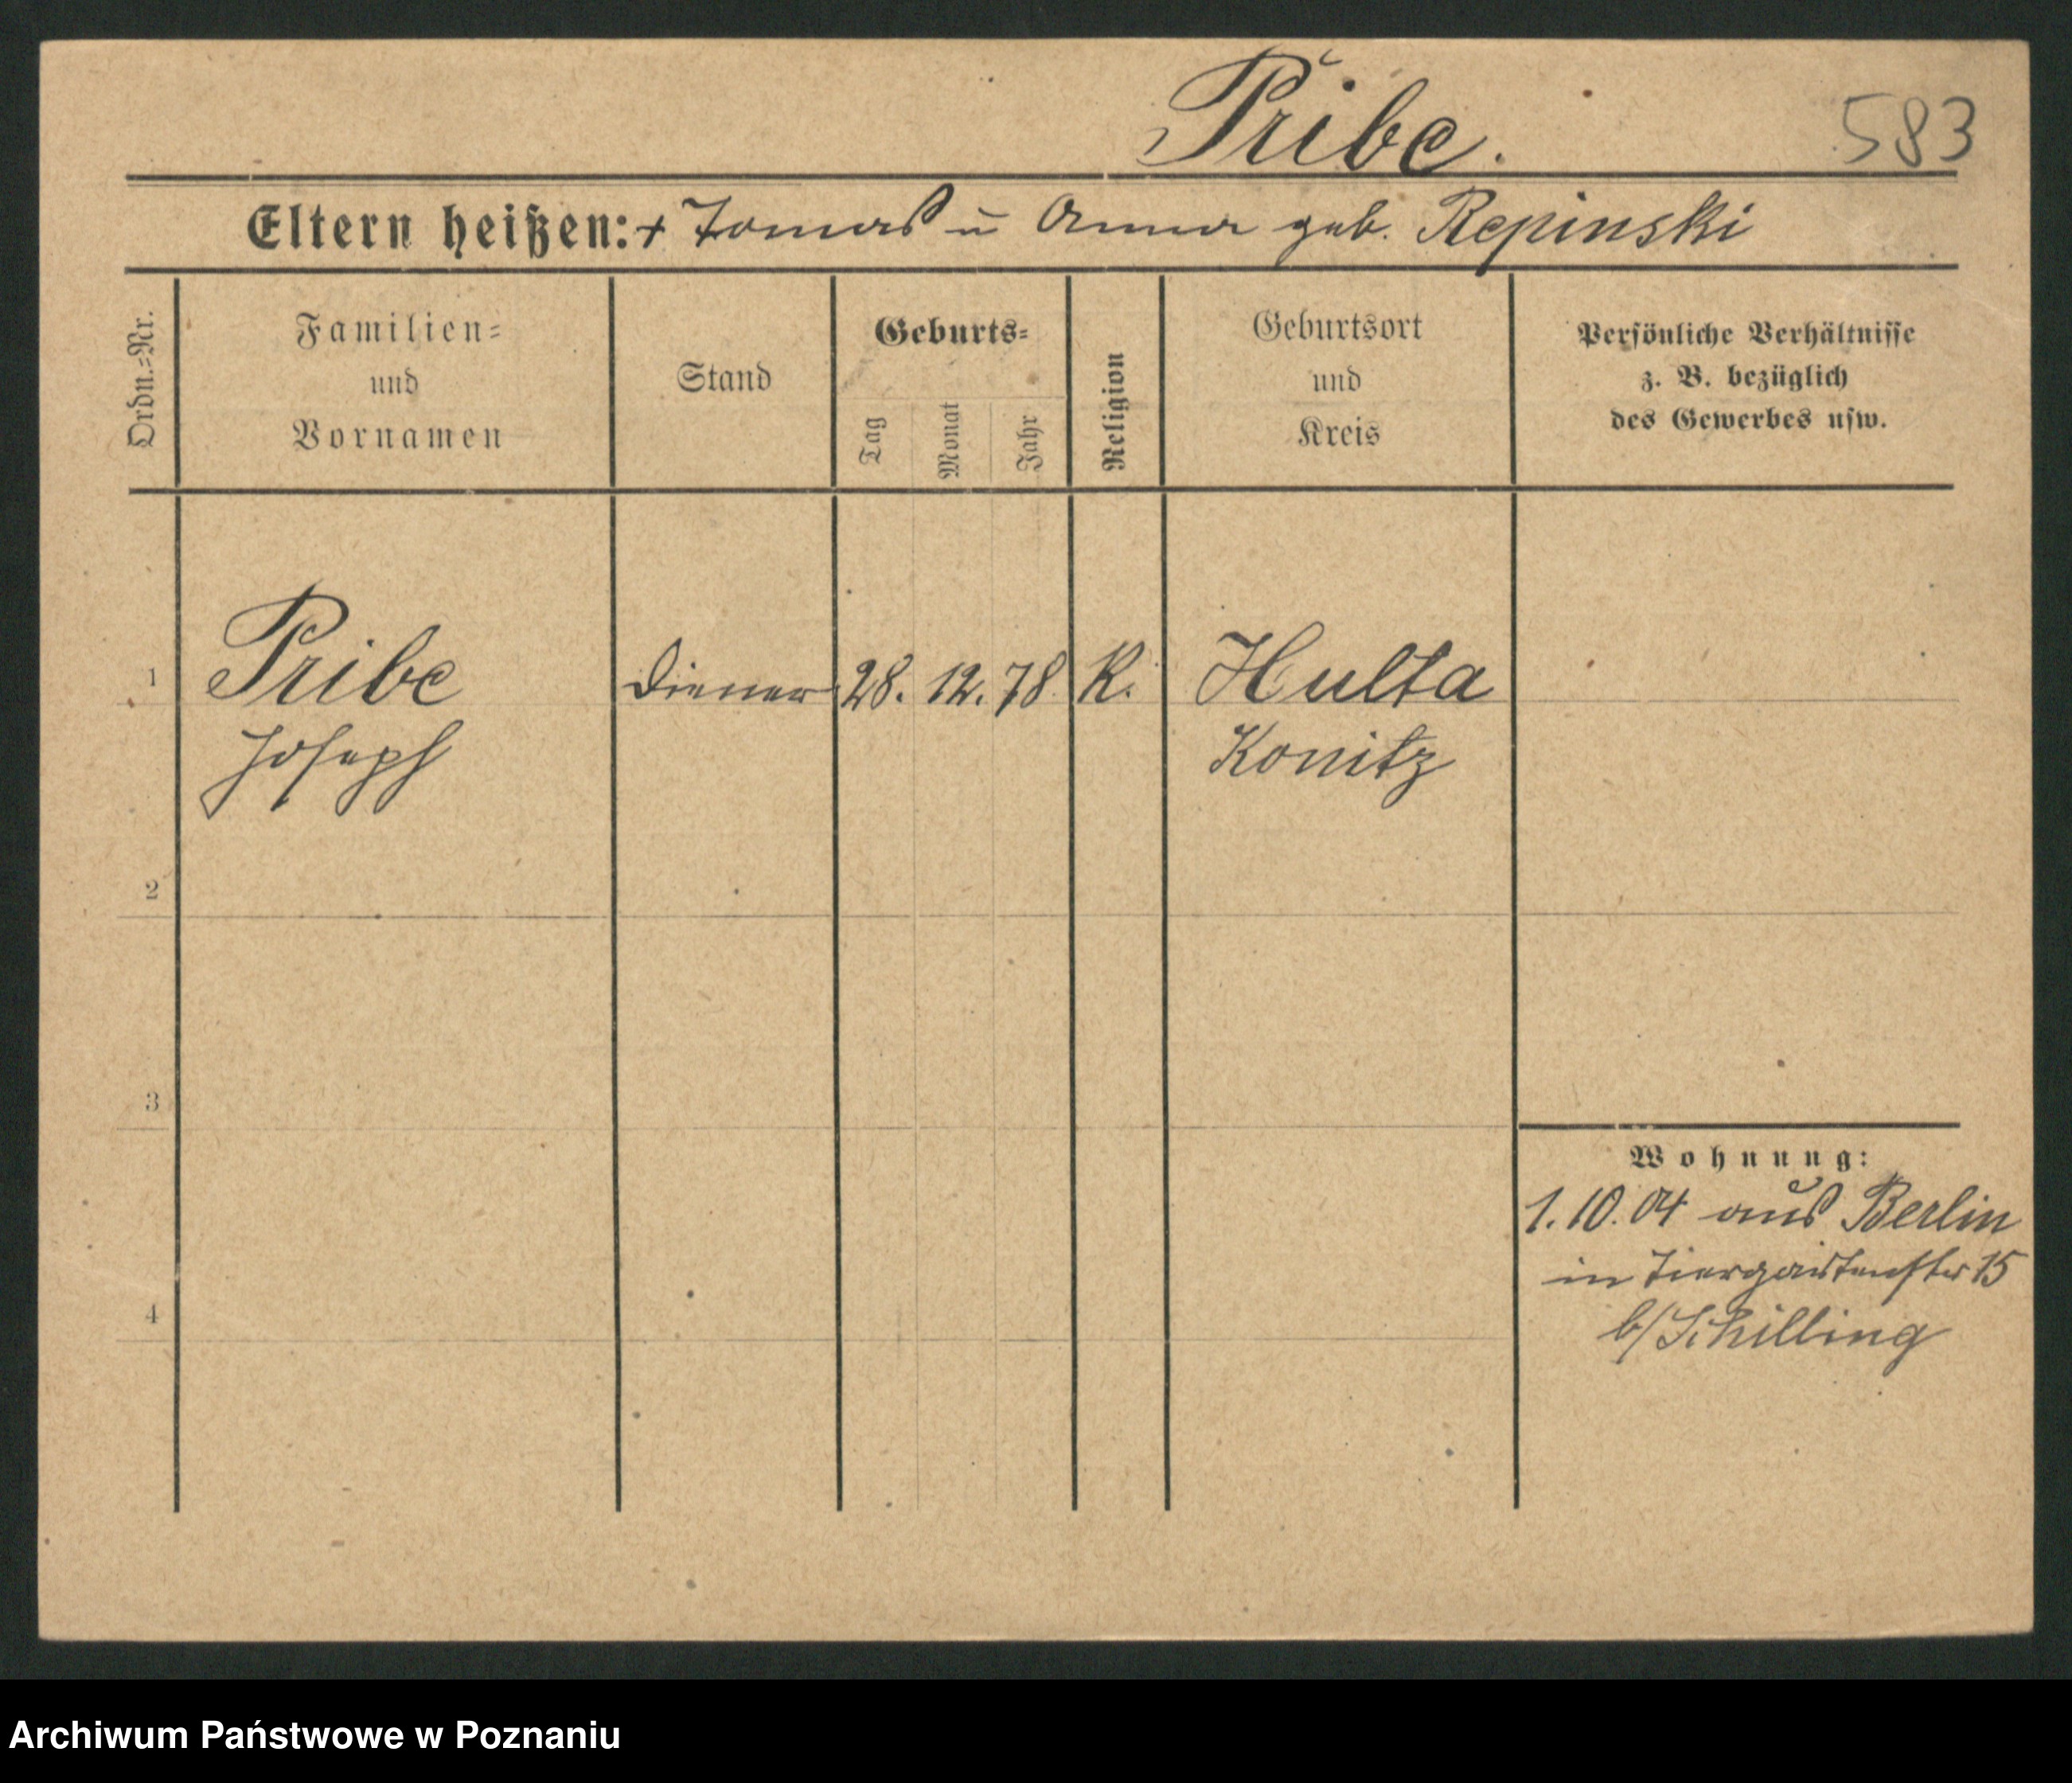 Pribe. 583
Eltern heißen: + Tomas u Anna geb. Repinski
Ordn.=Nr.
Familien=
und
Vornamen
Stand
Geburts=
Tag
Monat
Jahr
Religion
Geburtsort
und
Kreis
Persönliche Verhältnisse
z. B. bezüglich
des Gewerbes usw.
1 Pribe Diener 28. 12. 78 K. Hulta
Joseph Konitz
2
3
Wohnung:
1. 10. 04 aus Berlin
in Tiergartenstr 15
4
b/Schilling
Archiwum Państwowe w Poznaniu